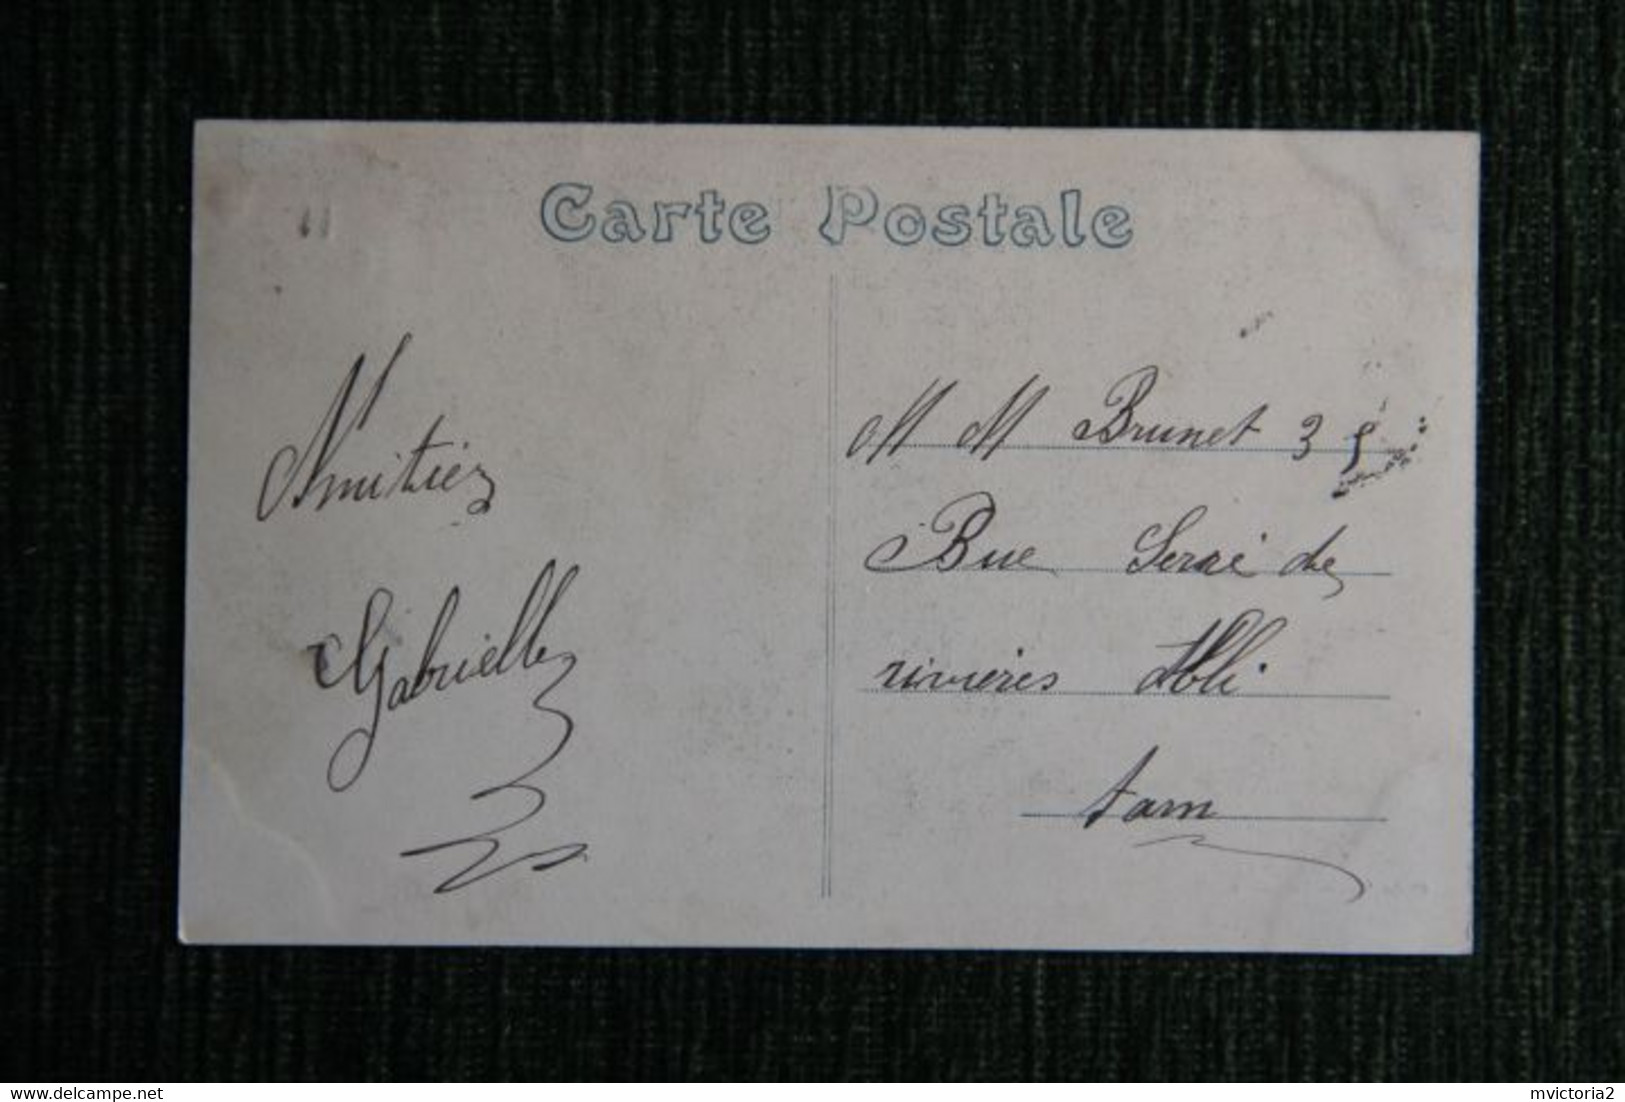 Carte Postale
Amitiés
Gabrielle
M M Brunet 35
Rue Seré de
rivières Albi
tarn
www.delcampe.net
mvictoria2